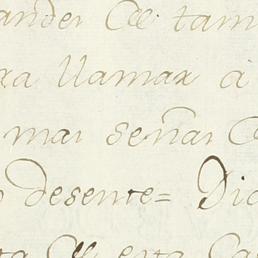 ander tam
ra llamar à
mai señai
desente= Dio
ta esta Ca